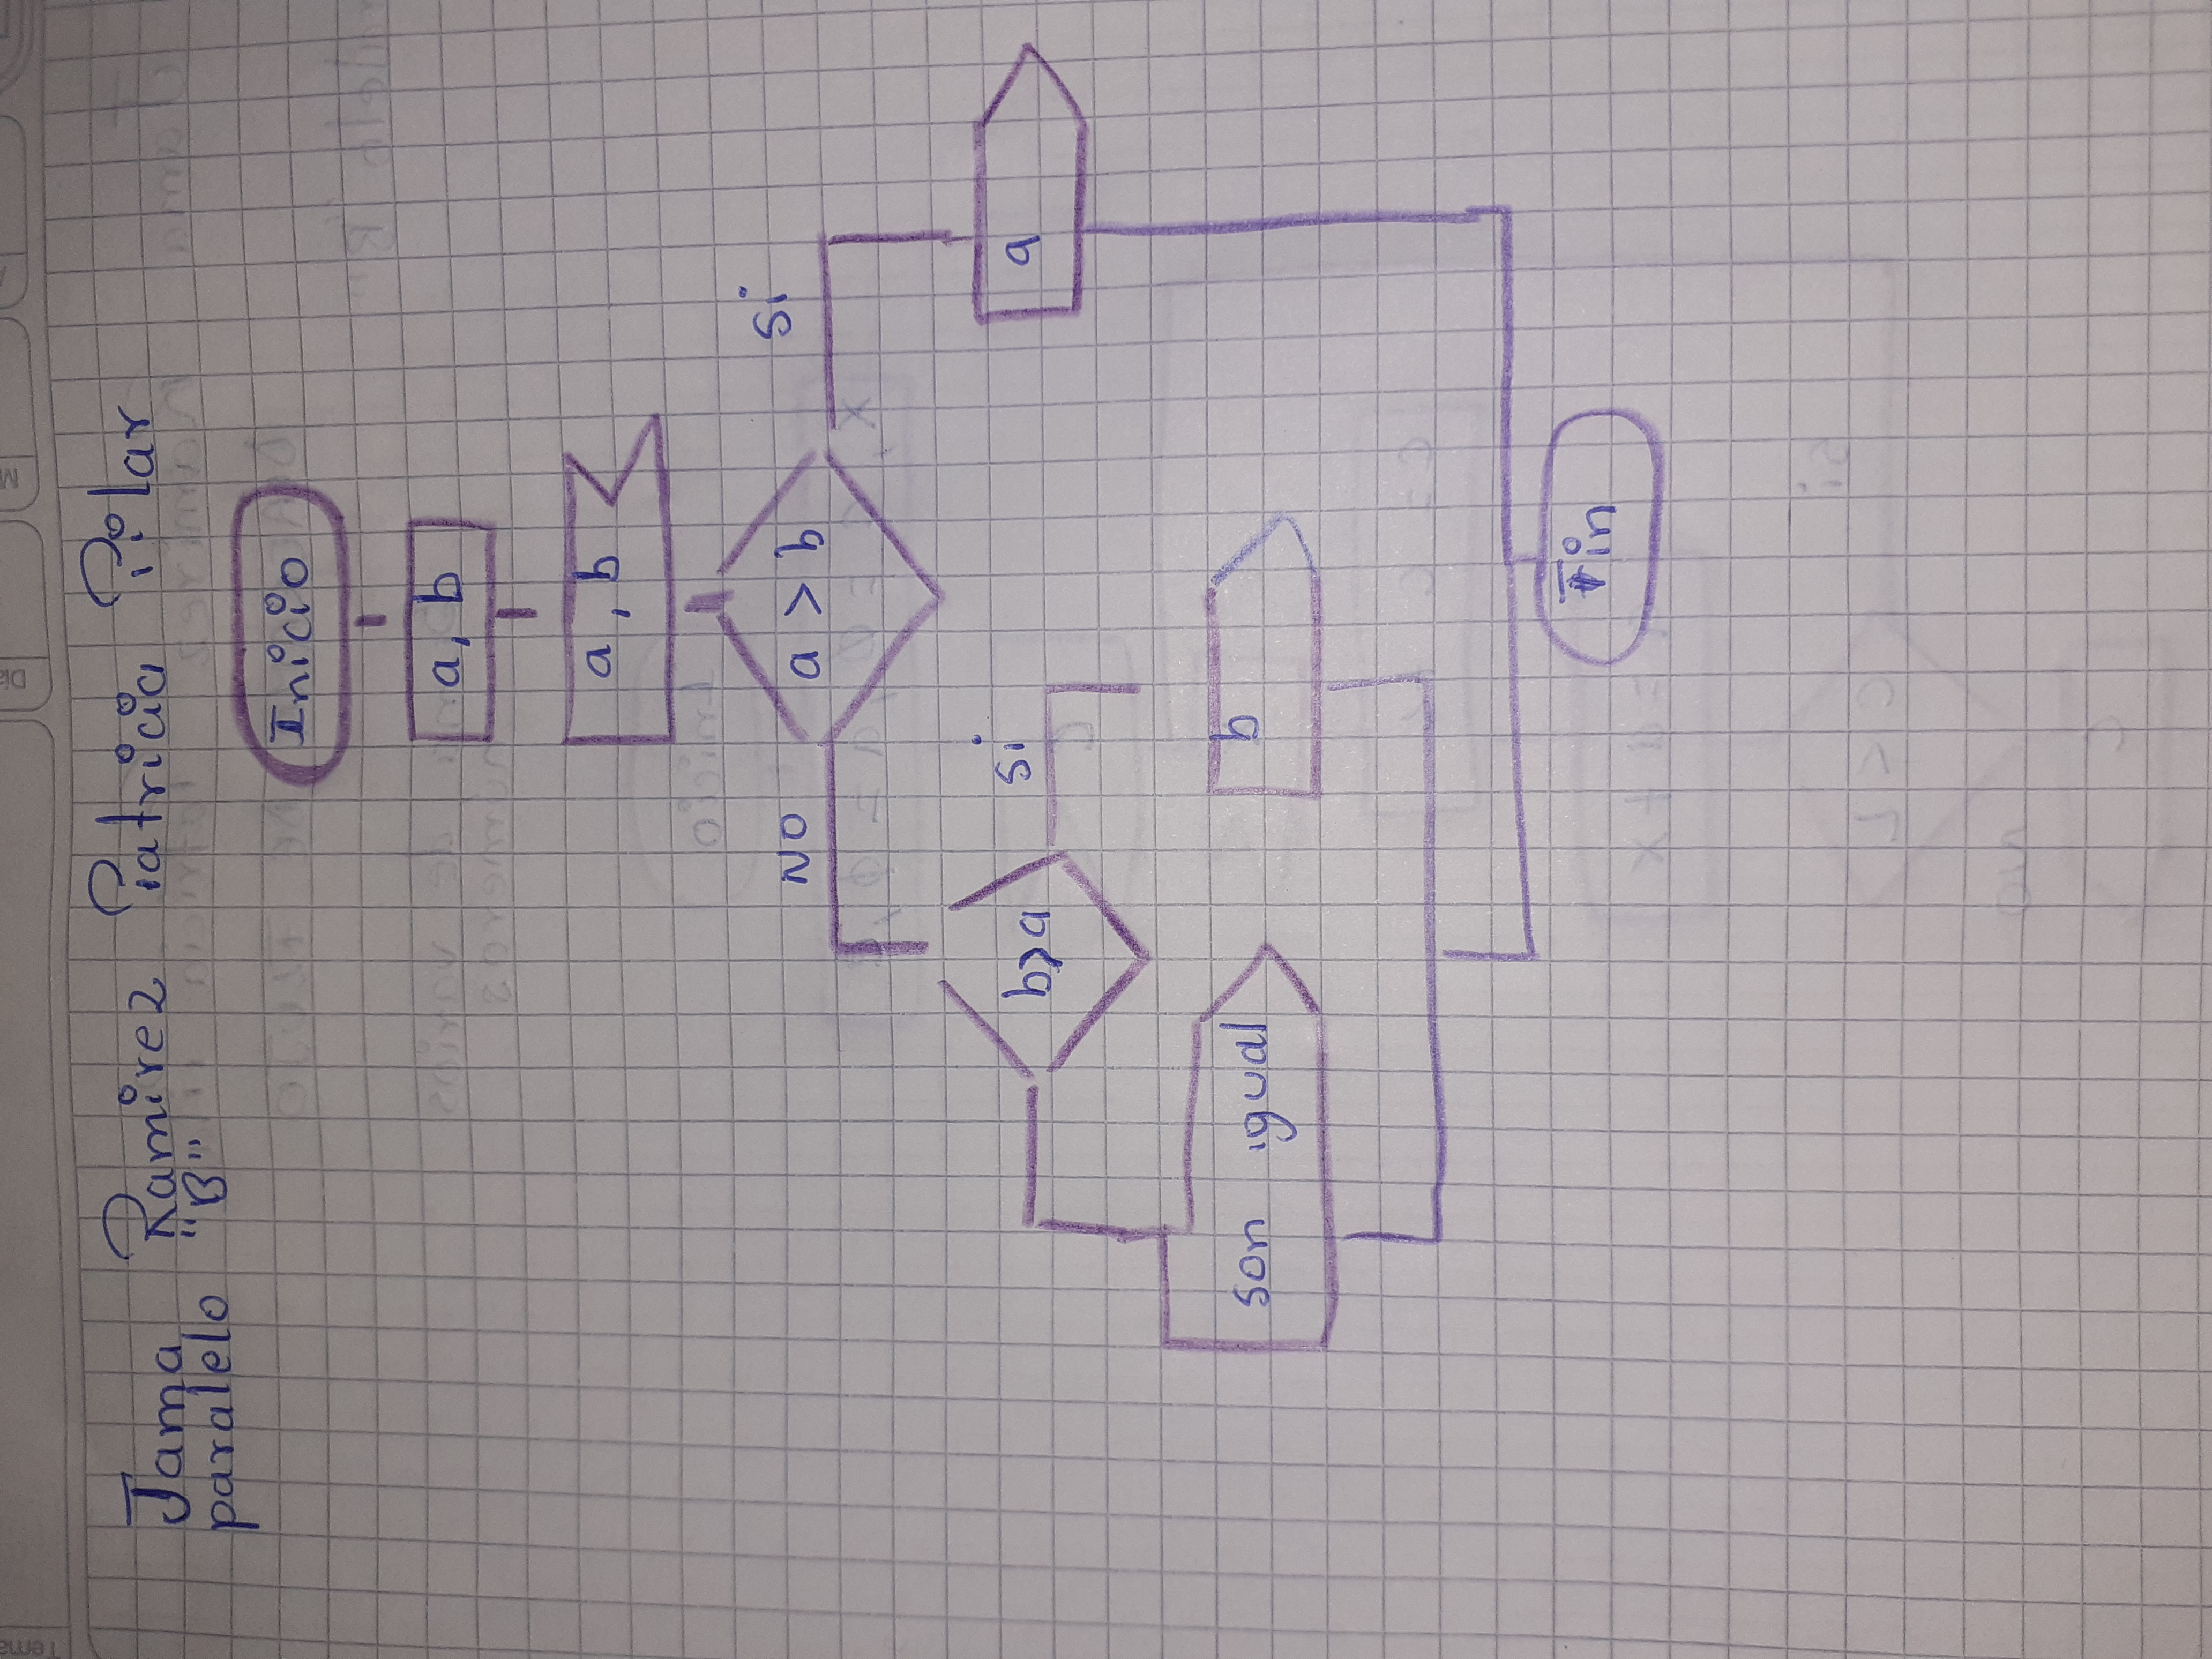 Jama Ramirez Patricia Pilar
paralelo "B"
Inicio
a, b
a, b
a > b
NO
si
b>a
si
a
son igual
b
Fin